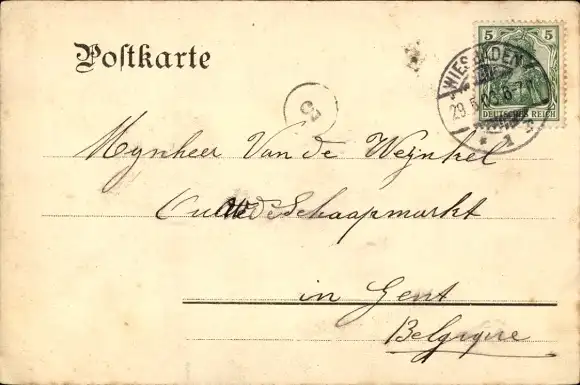 Postkarte
5 5
DEUTSCHES REICH
WIESBADEN
29.5.03. 6-7
* 1
Mynheer Van de Weynkel
Oude Schaapmarkt
in Gent
Belgique